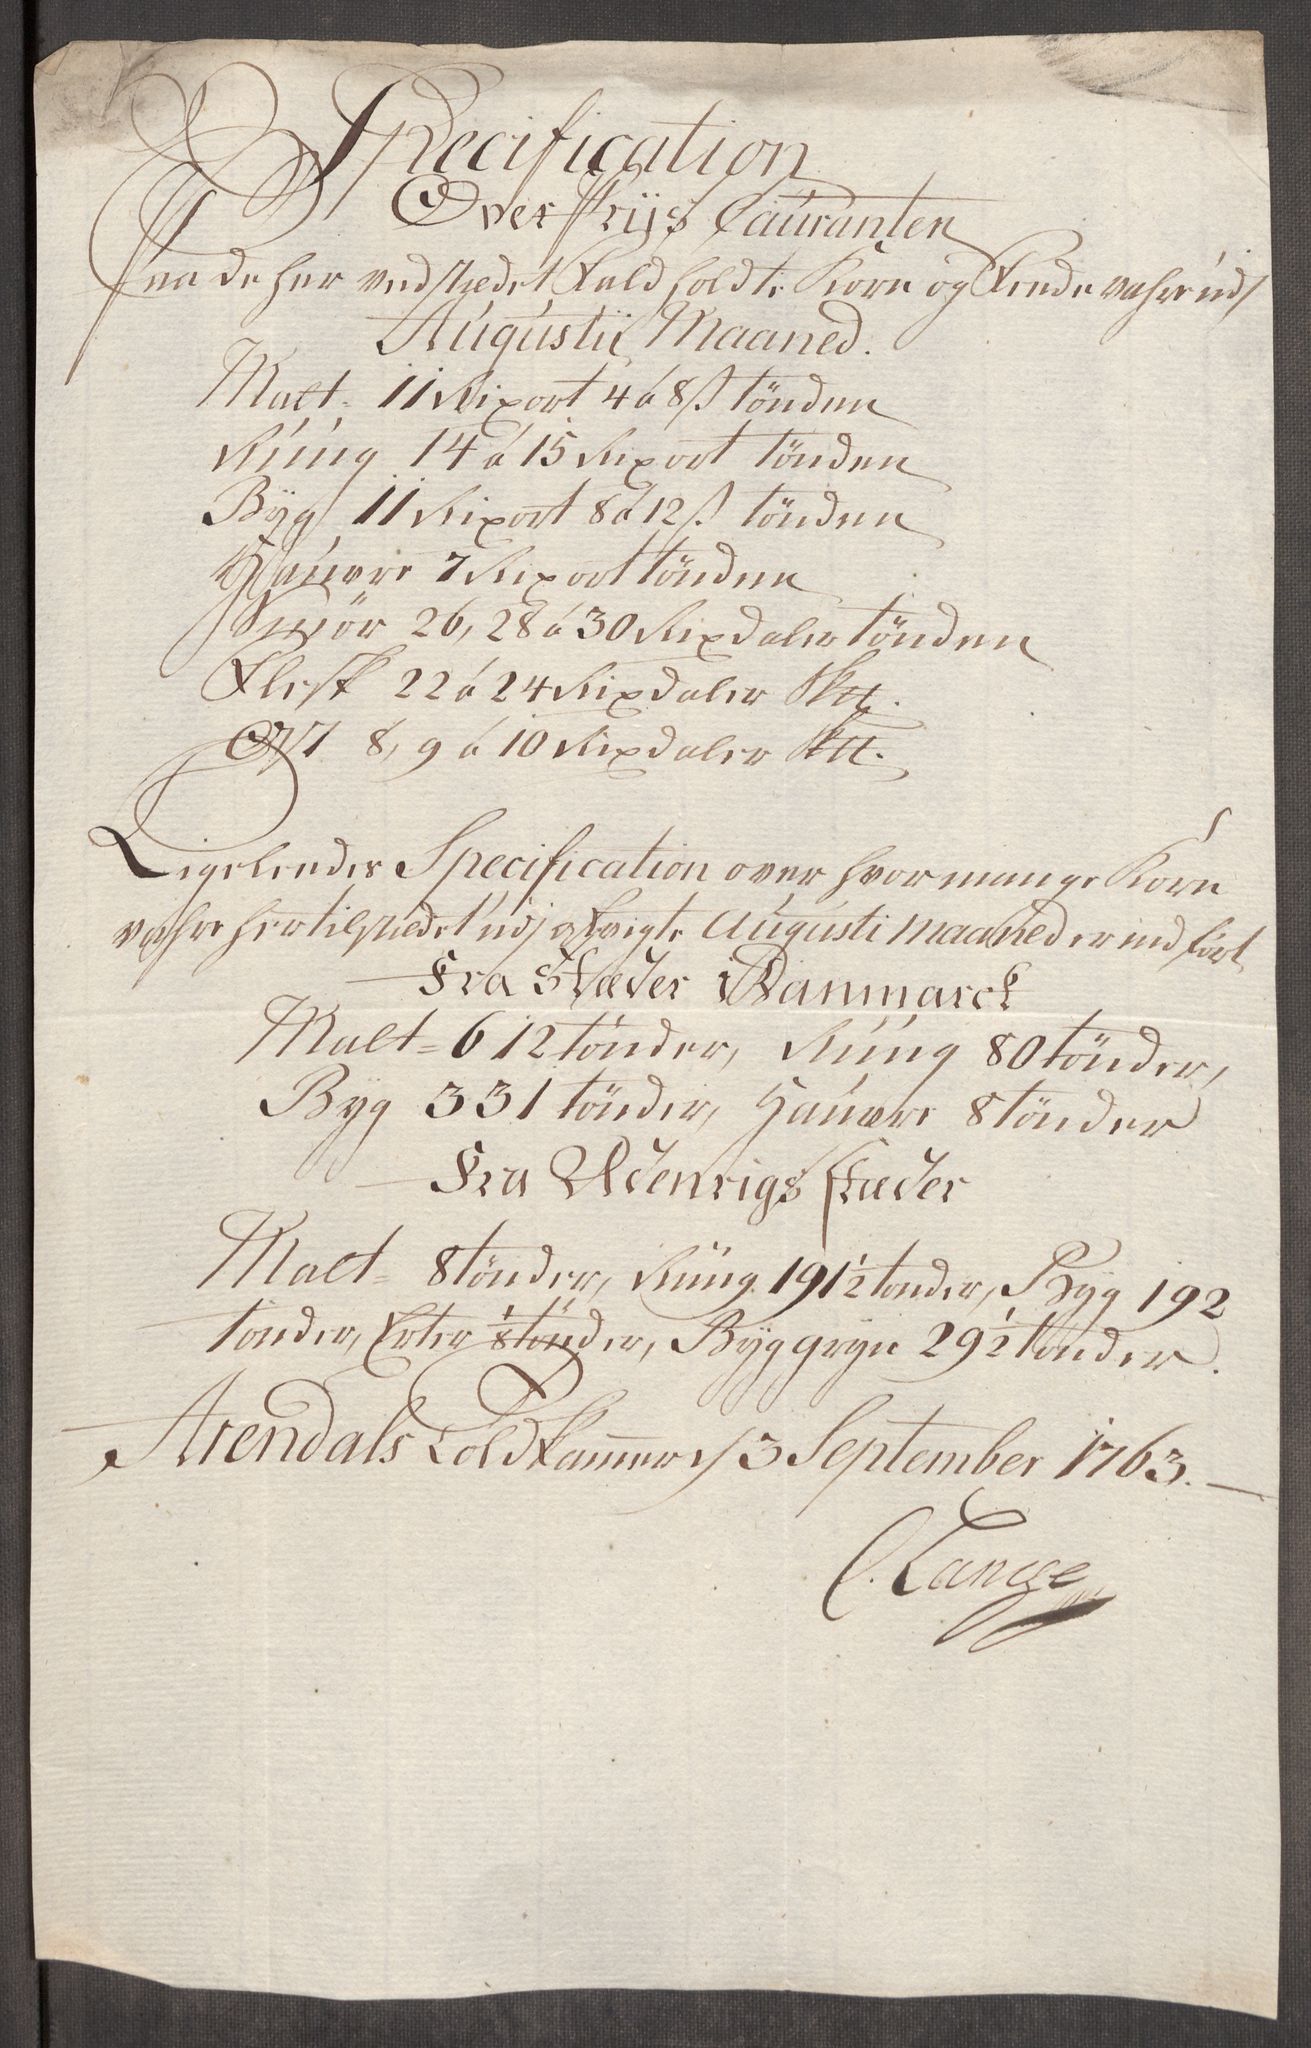 Specification
Over Priis Couranten
Paa de her ved stædet Fald holdte Korn og Fende vahre udj
Augustii Maaned.
Malt - 11 Rixort 4 á 8 s tönden
Rúúg 14 á 15 Rixort tönden
Byg 11 Rixort 8 á 12 s tönden
Haúvre 7 Rixort tönden
Smör 26, 28 á 30 Rixdaler tönden
Flesk 22 á 24 Rixdaler Sktt.
Ost 8, 9 á 10 Rixdaler Sktt.
Ligeleedes Specification over hvor mange Korn
vahre her til stædet udj afvigte Augusti Maaned er ind fört
Fra Stæder i Danmarck
Malt - 612 tönder, Rúúg 80 tönder,
Byg 331 tönder, Haúvre 8 tönder
Fra Udenrigs stæder
Malt - 8 tönder, Rúúg 191 1/2 tonder, Byg 192
tonder, Erter 1/8 tönder, Byggryn 29 1/2 tonder.
Arendals Told Kammer d 3 September 1763. —
C. Lange